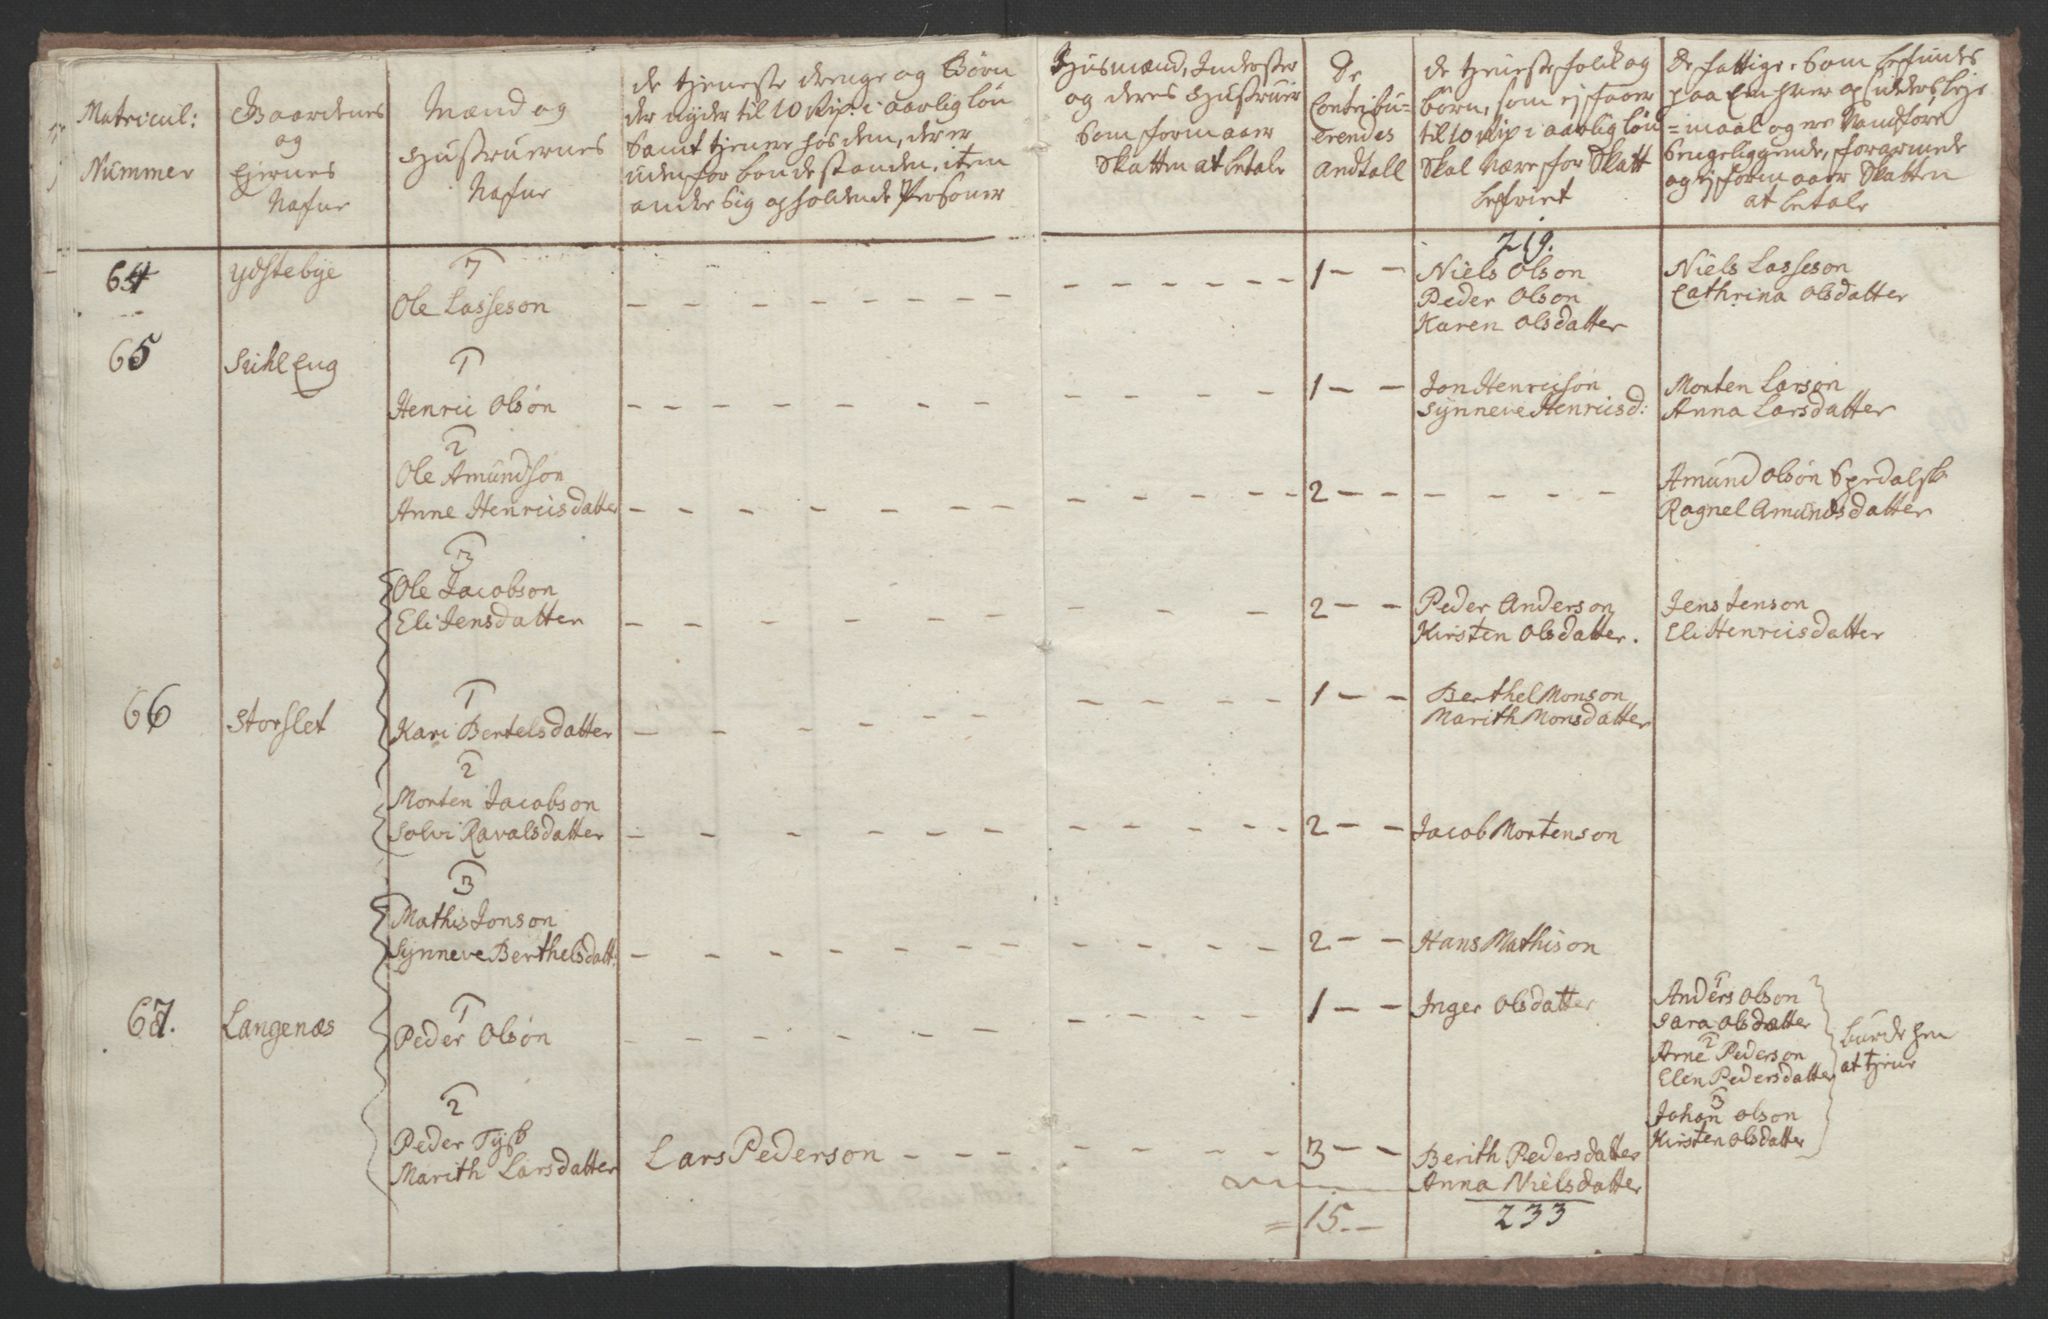 Matricul:
Nummer
Gaardenes
og
Ejernes
Nafne
Mænd og
Hustruernes
Nafne
de tjeneste drenge og Børn
der nyder til 10 Rip: i aarlig løn
samt tjener hos dem, der er
uden for bondestanden, item
andre sig opholdende Personer
Husmænd, Inderster
og deres Hustruer
som formaaer
Skatten at betale
De
Contribu=
erendes
Andtall
de tjeneste folk og
børn, som ej faaer
til 10 Rip i aarlig løn
Skal være for Skatt
befriet
De fattige, som befindes
paa Enhver
=maal og ere Vandføre
Sengeliggende, forarmede
og ej formaaer Skatten
at betale
219.
64 Ydstebye 7
Ole Lasseson 1
Niels Olson
Peder Olson
Karen Olsdatter
Niels Lasseson
Cathrina Olsdatter
65 Suhl Eng 1
Henric Olsøn 1
Jon Henricsøn
Synneve Henricsd:
Morten Larson
Anna Larsdatter
2
Ole Amundsøn
Anne Henricsdatter 2
Amund Olsøn
Ragnel Amundsdatter
3
Ole Jacobson
Eli Jensdatter 2
Peder Anderson
Kirsten Olsdatter.
Jens Jenson
Eli Henricsdatter
66 Storslet 1
Kari Bertelsdatter 1
Berthel Monson
Marith Monsdatter
2
Morten Jacobson
Solvi Ravalsdatter 2
Jacob Mortenson
3
Mathis Jonson
Synneve Berthelsdatt: 2
Hans Mathison
67. Langenæs 1
Peder Olsøn 1
Inger Olsdatter
1
Anders Olson
Sara Olsdatter
2
Arne Pederson
Elen Pedersdatter
3
Johan Olson
Kirsten Olsdatter
burde hen
at tjene
2
Peder Tysk
Marith Larsdatter Lars Pederson 3
Berith Pedersdatter
Anna Nielsdatter
= 15.
233